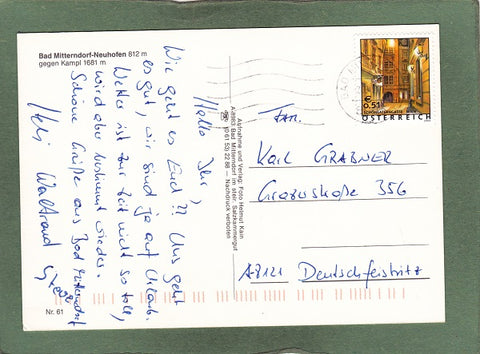 Bad Mitterndorf-Neuhofen 812 m
gegen Kampl 1681 m
Hallo Ihr,
Wie geht es Euch?! Uns geht
es gut, wir sind ja auf Urlaub.
Wetter ist zur Zeit nicht so toll,
wird aber bestimmt wieder.
Schöne Grüße aus Bad Mitterndorf
Waltraud
Nr. 61
Aufnahme und Verlag: Foto Helmut Käin
A-8983 Bad Mitterndorf im steir. Salzkammergut
(0 61 53) 22 88 — Nachdruck verboten
€ 0.51
ÖSTERREICH
Fam.
Karl GRABNER
Grazerstraße 356
A8121 Deutschfeistritz